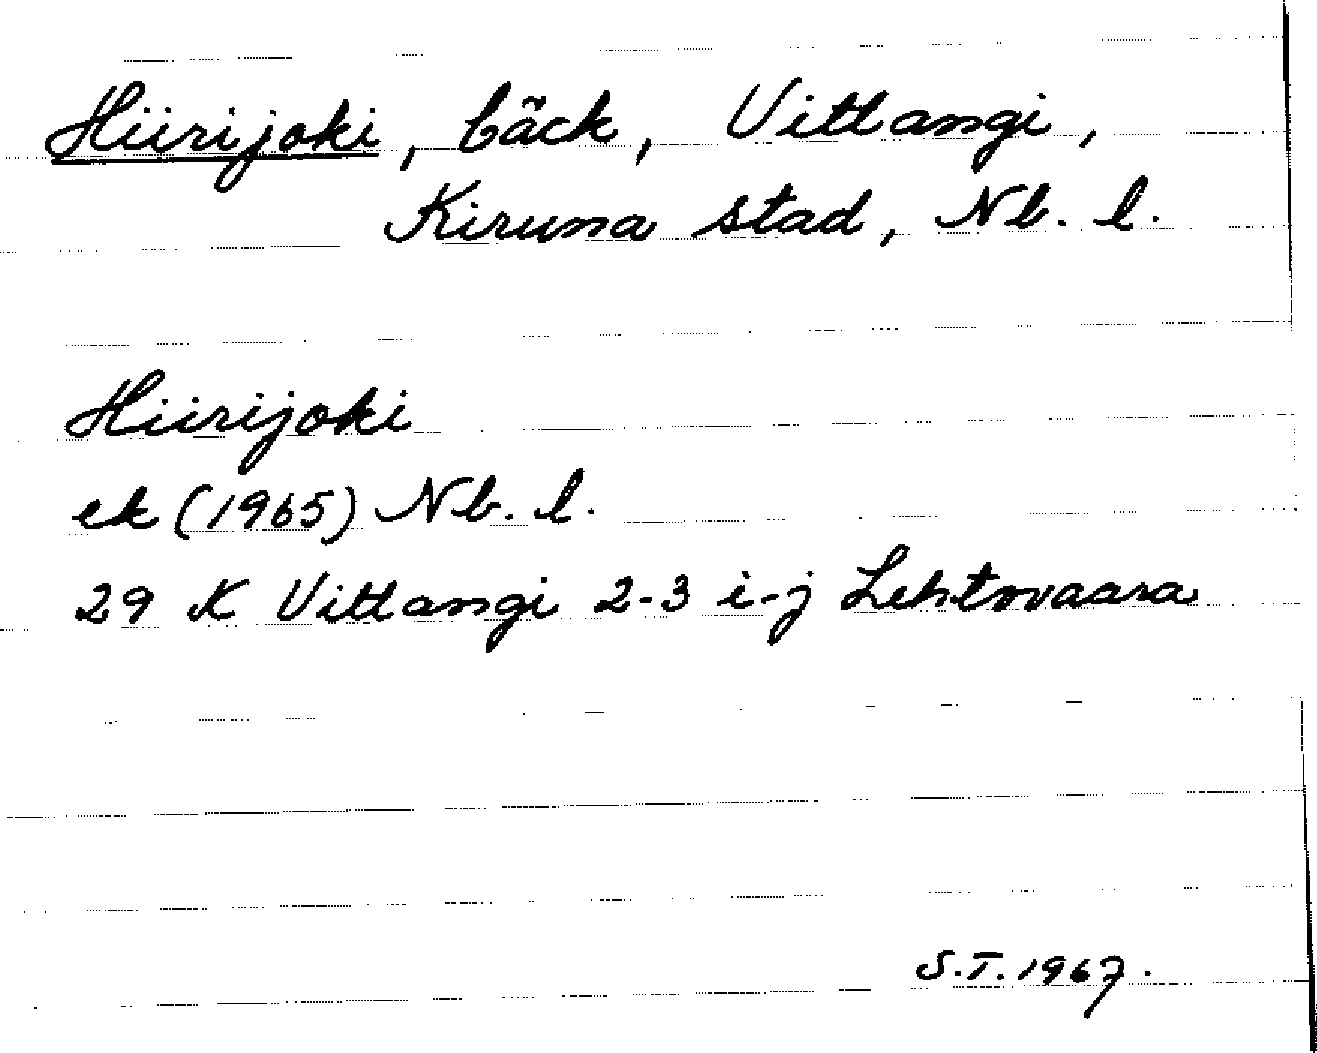 Hiirijoki, bäck, Vittangi,
Kiruna stad, Nb. l.
Hiirijoki
ek (1965) Nb. l.
29 K Vittangi 2-3 i-j Lehtovaara
S.T. 1967.